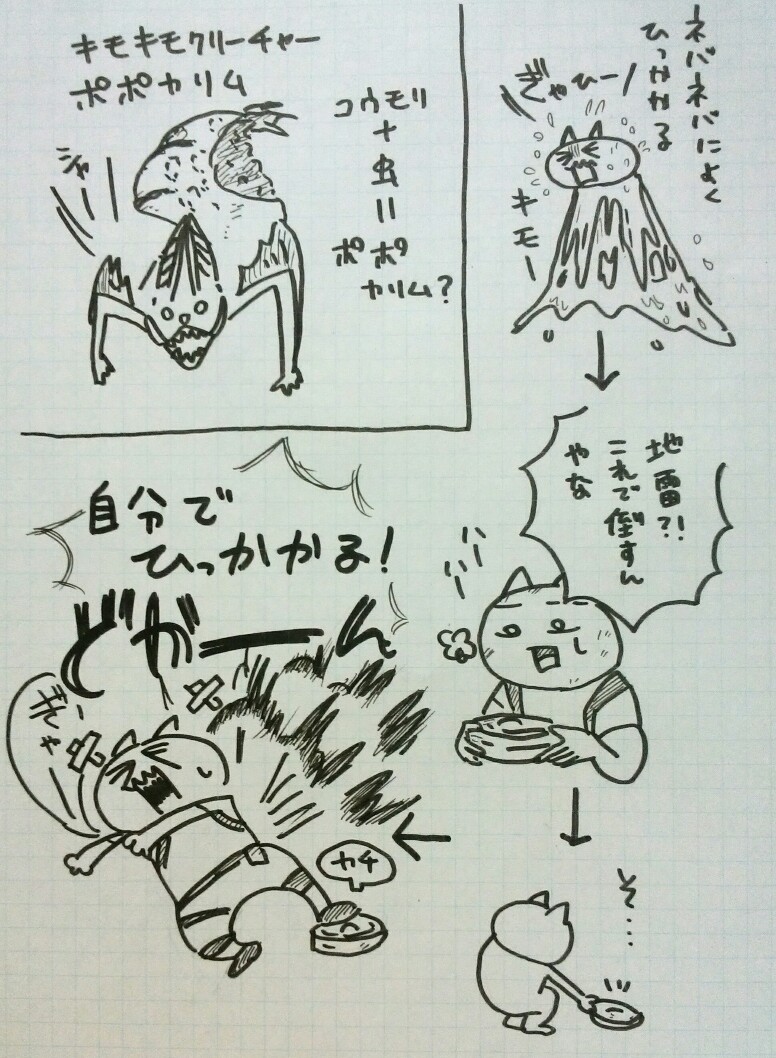 ネバネバによく
ひっかかる
ぎゃひー!
キモー
キモキモクリーチャー
ポポカリム
シャー
コウモリ
+
虫
=
ポポ
カリム?
地雷?!
これで倒すん
やな
そ…
自分で
ひっかかる!
どがーん
ぎにゃー
カチ